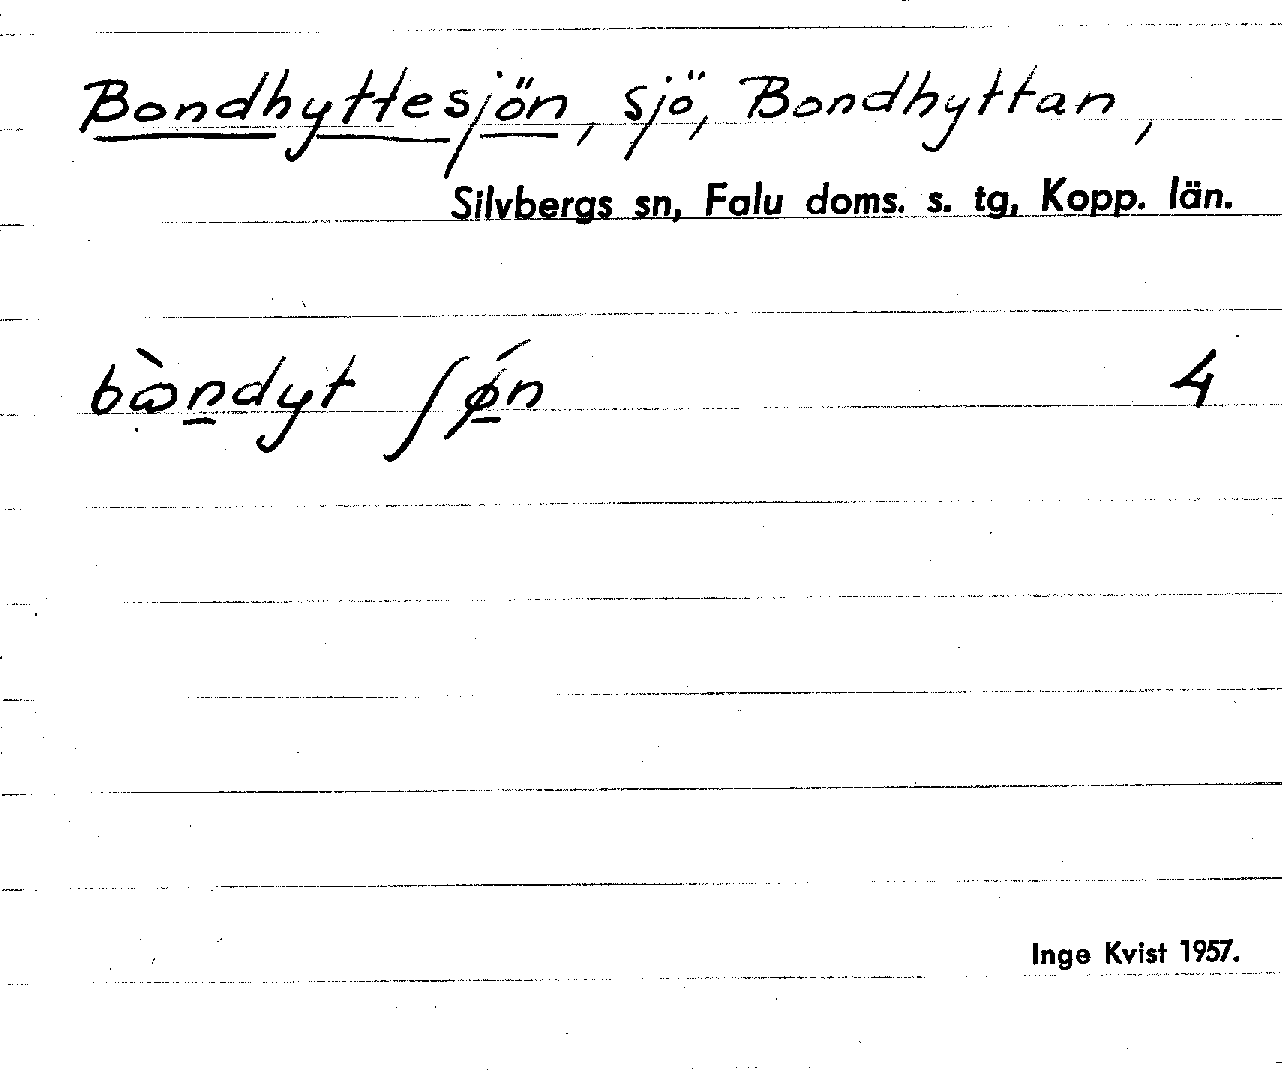 Bondhyttesjön, sjö, Bondhyttan,
Silvbergs sn, Falu doms. s. tg, Kopp. län.
bὼndyt ʃǿn 4
Inge Kvist 1957.